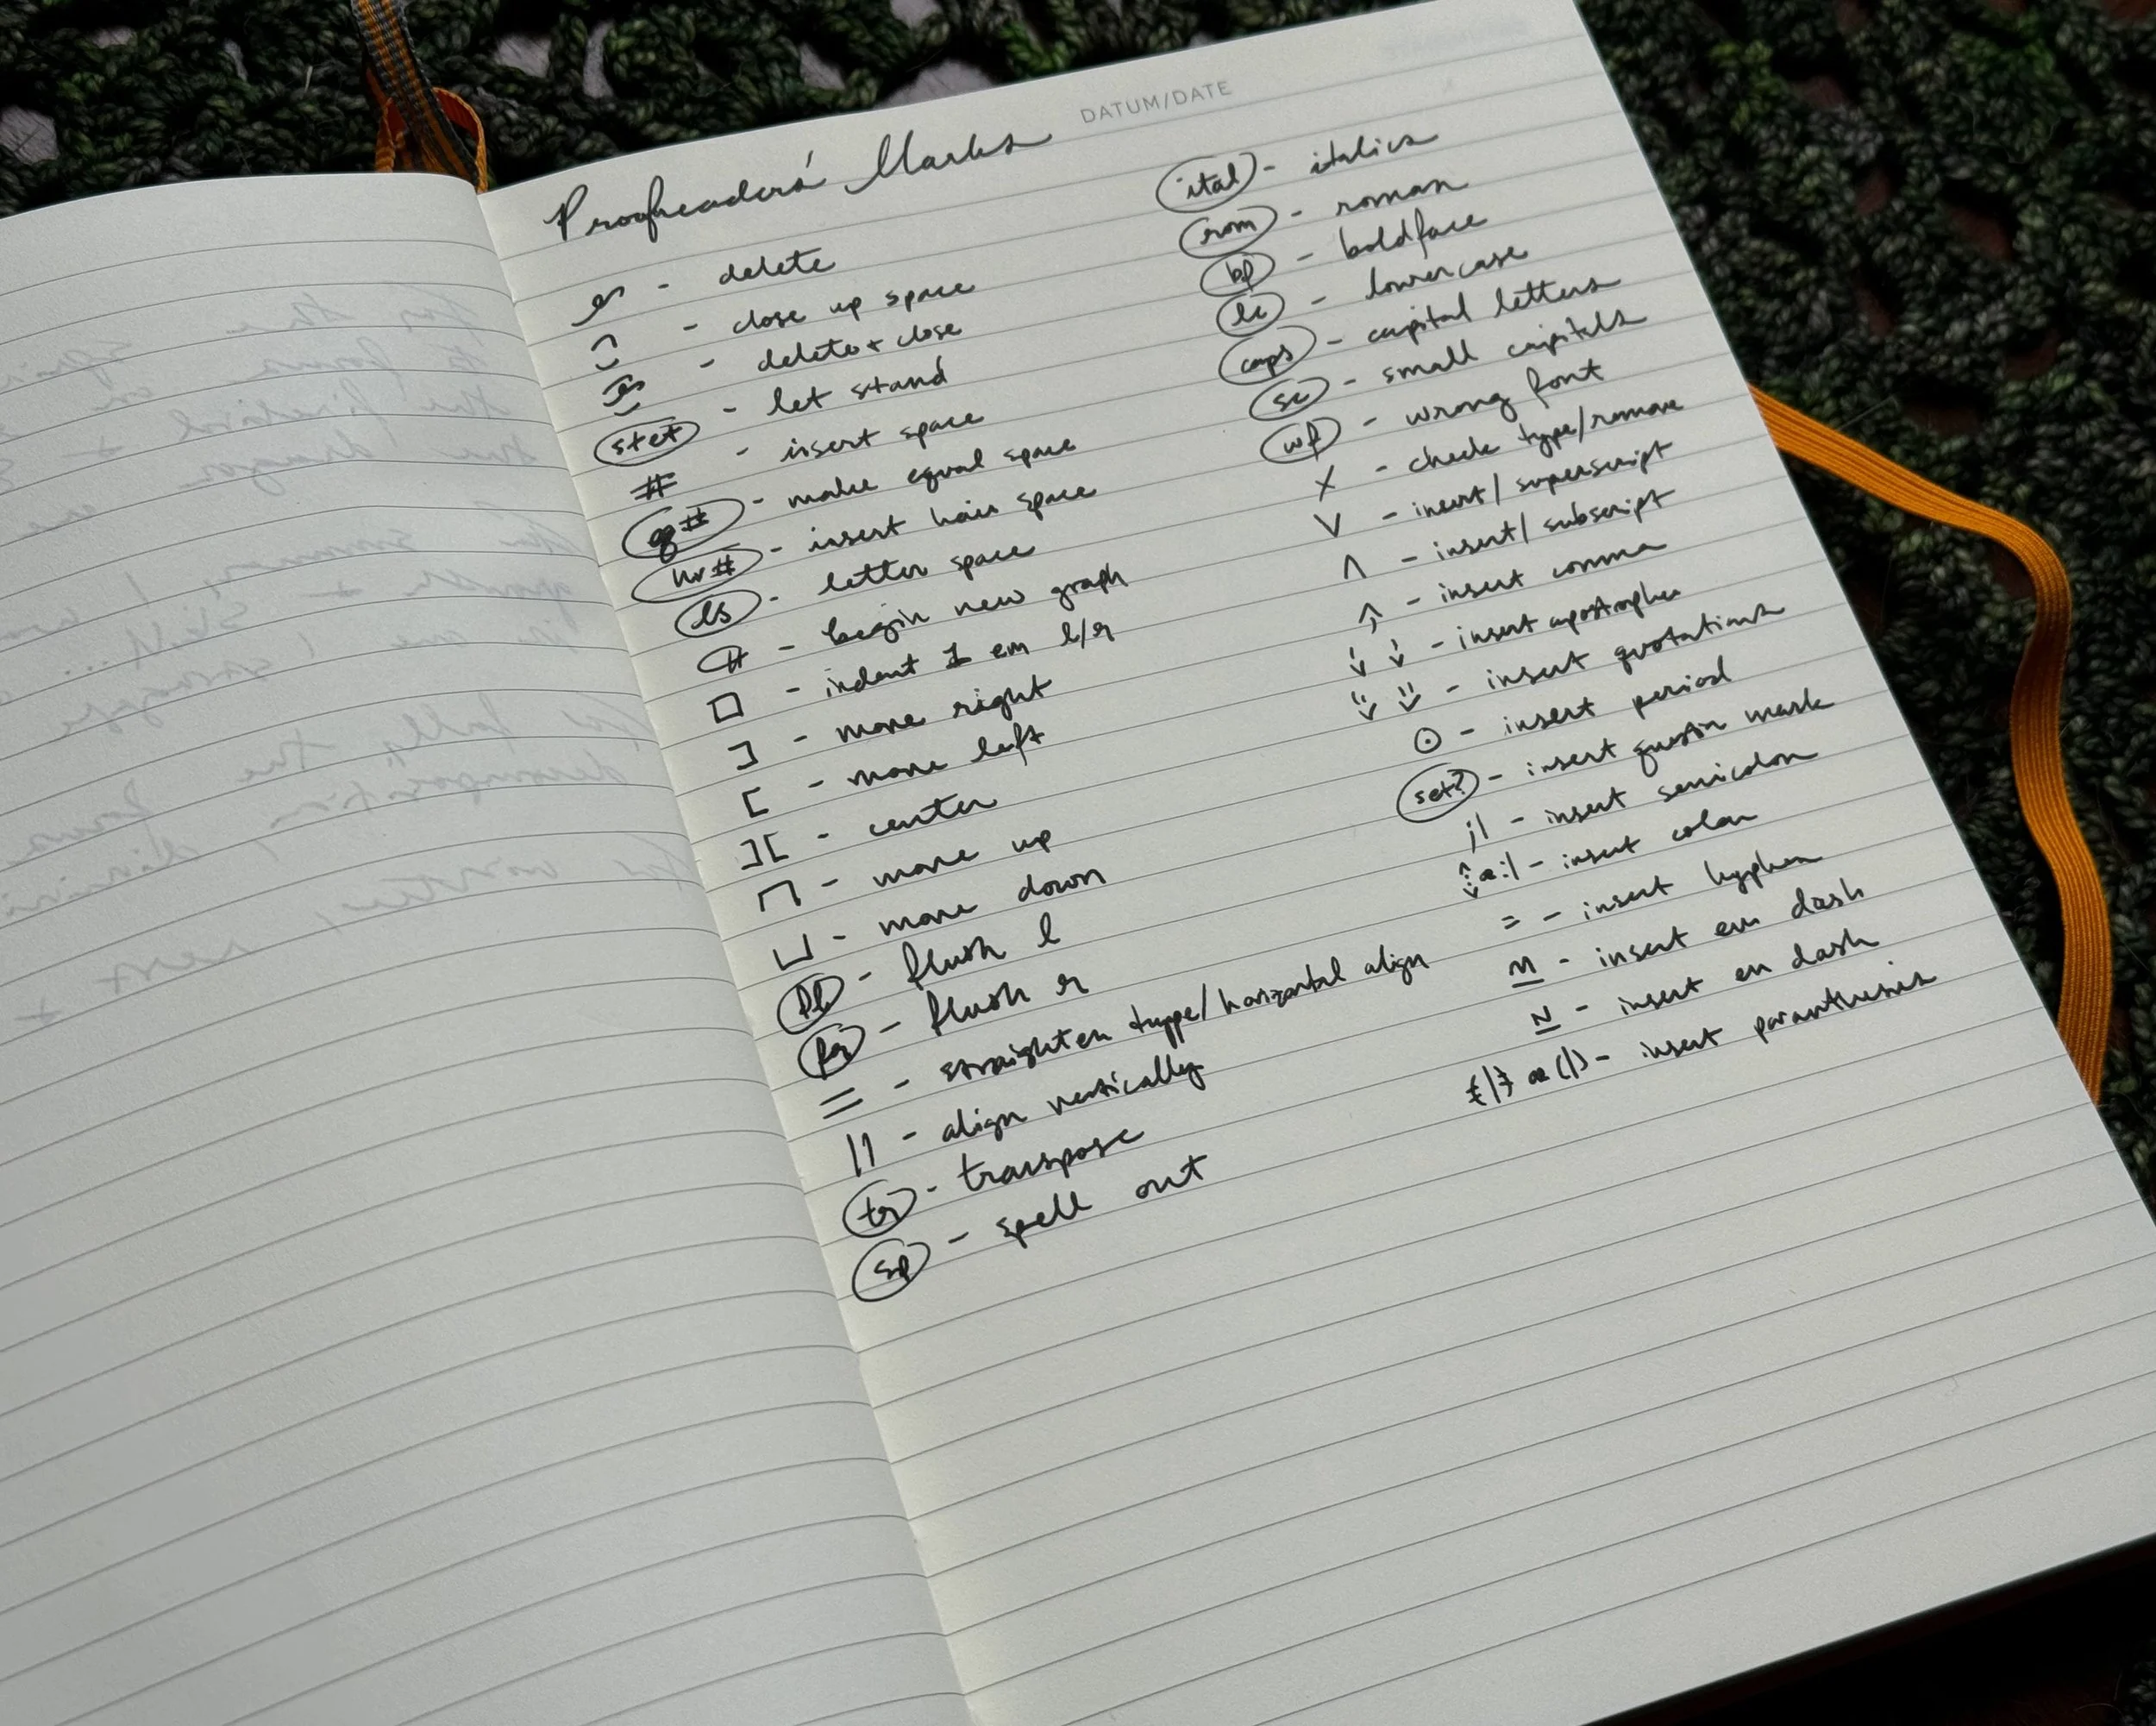 DATUM/DATE
Proofreaders' Marks
- delete
- close up space
- delete + close
stet - let stand
# - insert space
eq # - make equal space
hr # - insert hair space
ls - letter space
¶ - begin new graph
□ - indent 1 em l/r
] - move right
[ - move left
][ - center
⊓ - move up
⊔ - move down
fl - flush l
fr - flush r
= - straighten type/horizontal align
|| - align vertically
tr - transpose
sp - spell out
ital - italics
rom - roman
bf - boldface
lc - lowercase
caps - capital letters
sc - small capitals
wf - wrong font
X - check type/remove
V - inert/superscript
Λ - insert/subscript
- insert comma
- insert apostrophe
- insert quotations
⊙ - insert period
set? - insert question mark
;| - insert semicolon
or :| - insert colon
= - insert hyphen
M - insert em dash
N - insert en dash
{|} or (|) - insert paranthesis